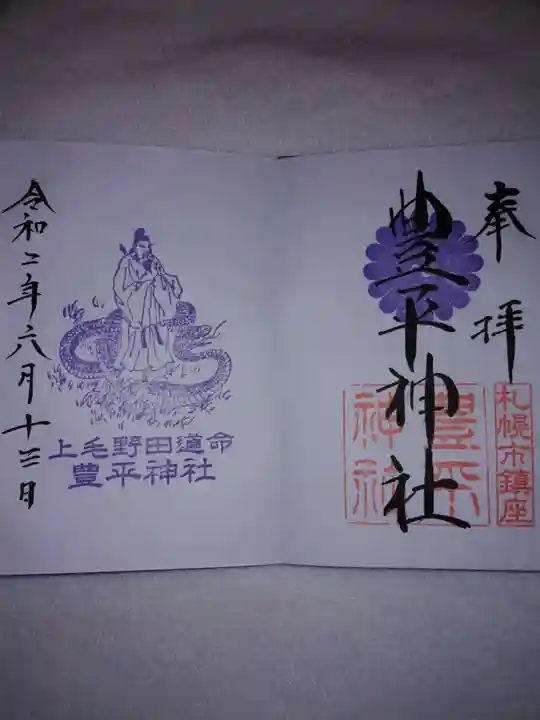 奉拝
豊平神社
札幌市鎮座
豊平
神社
上毛野田道命
豊平神社
令和二年六月十三日